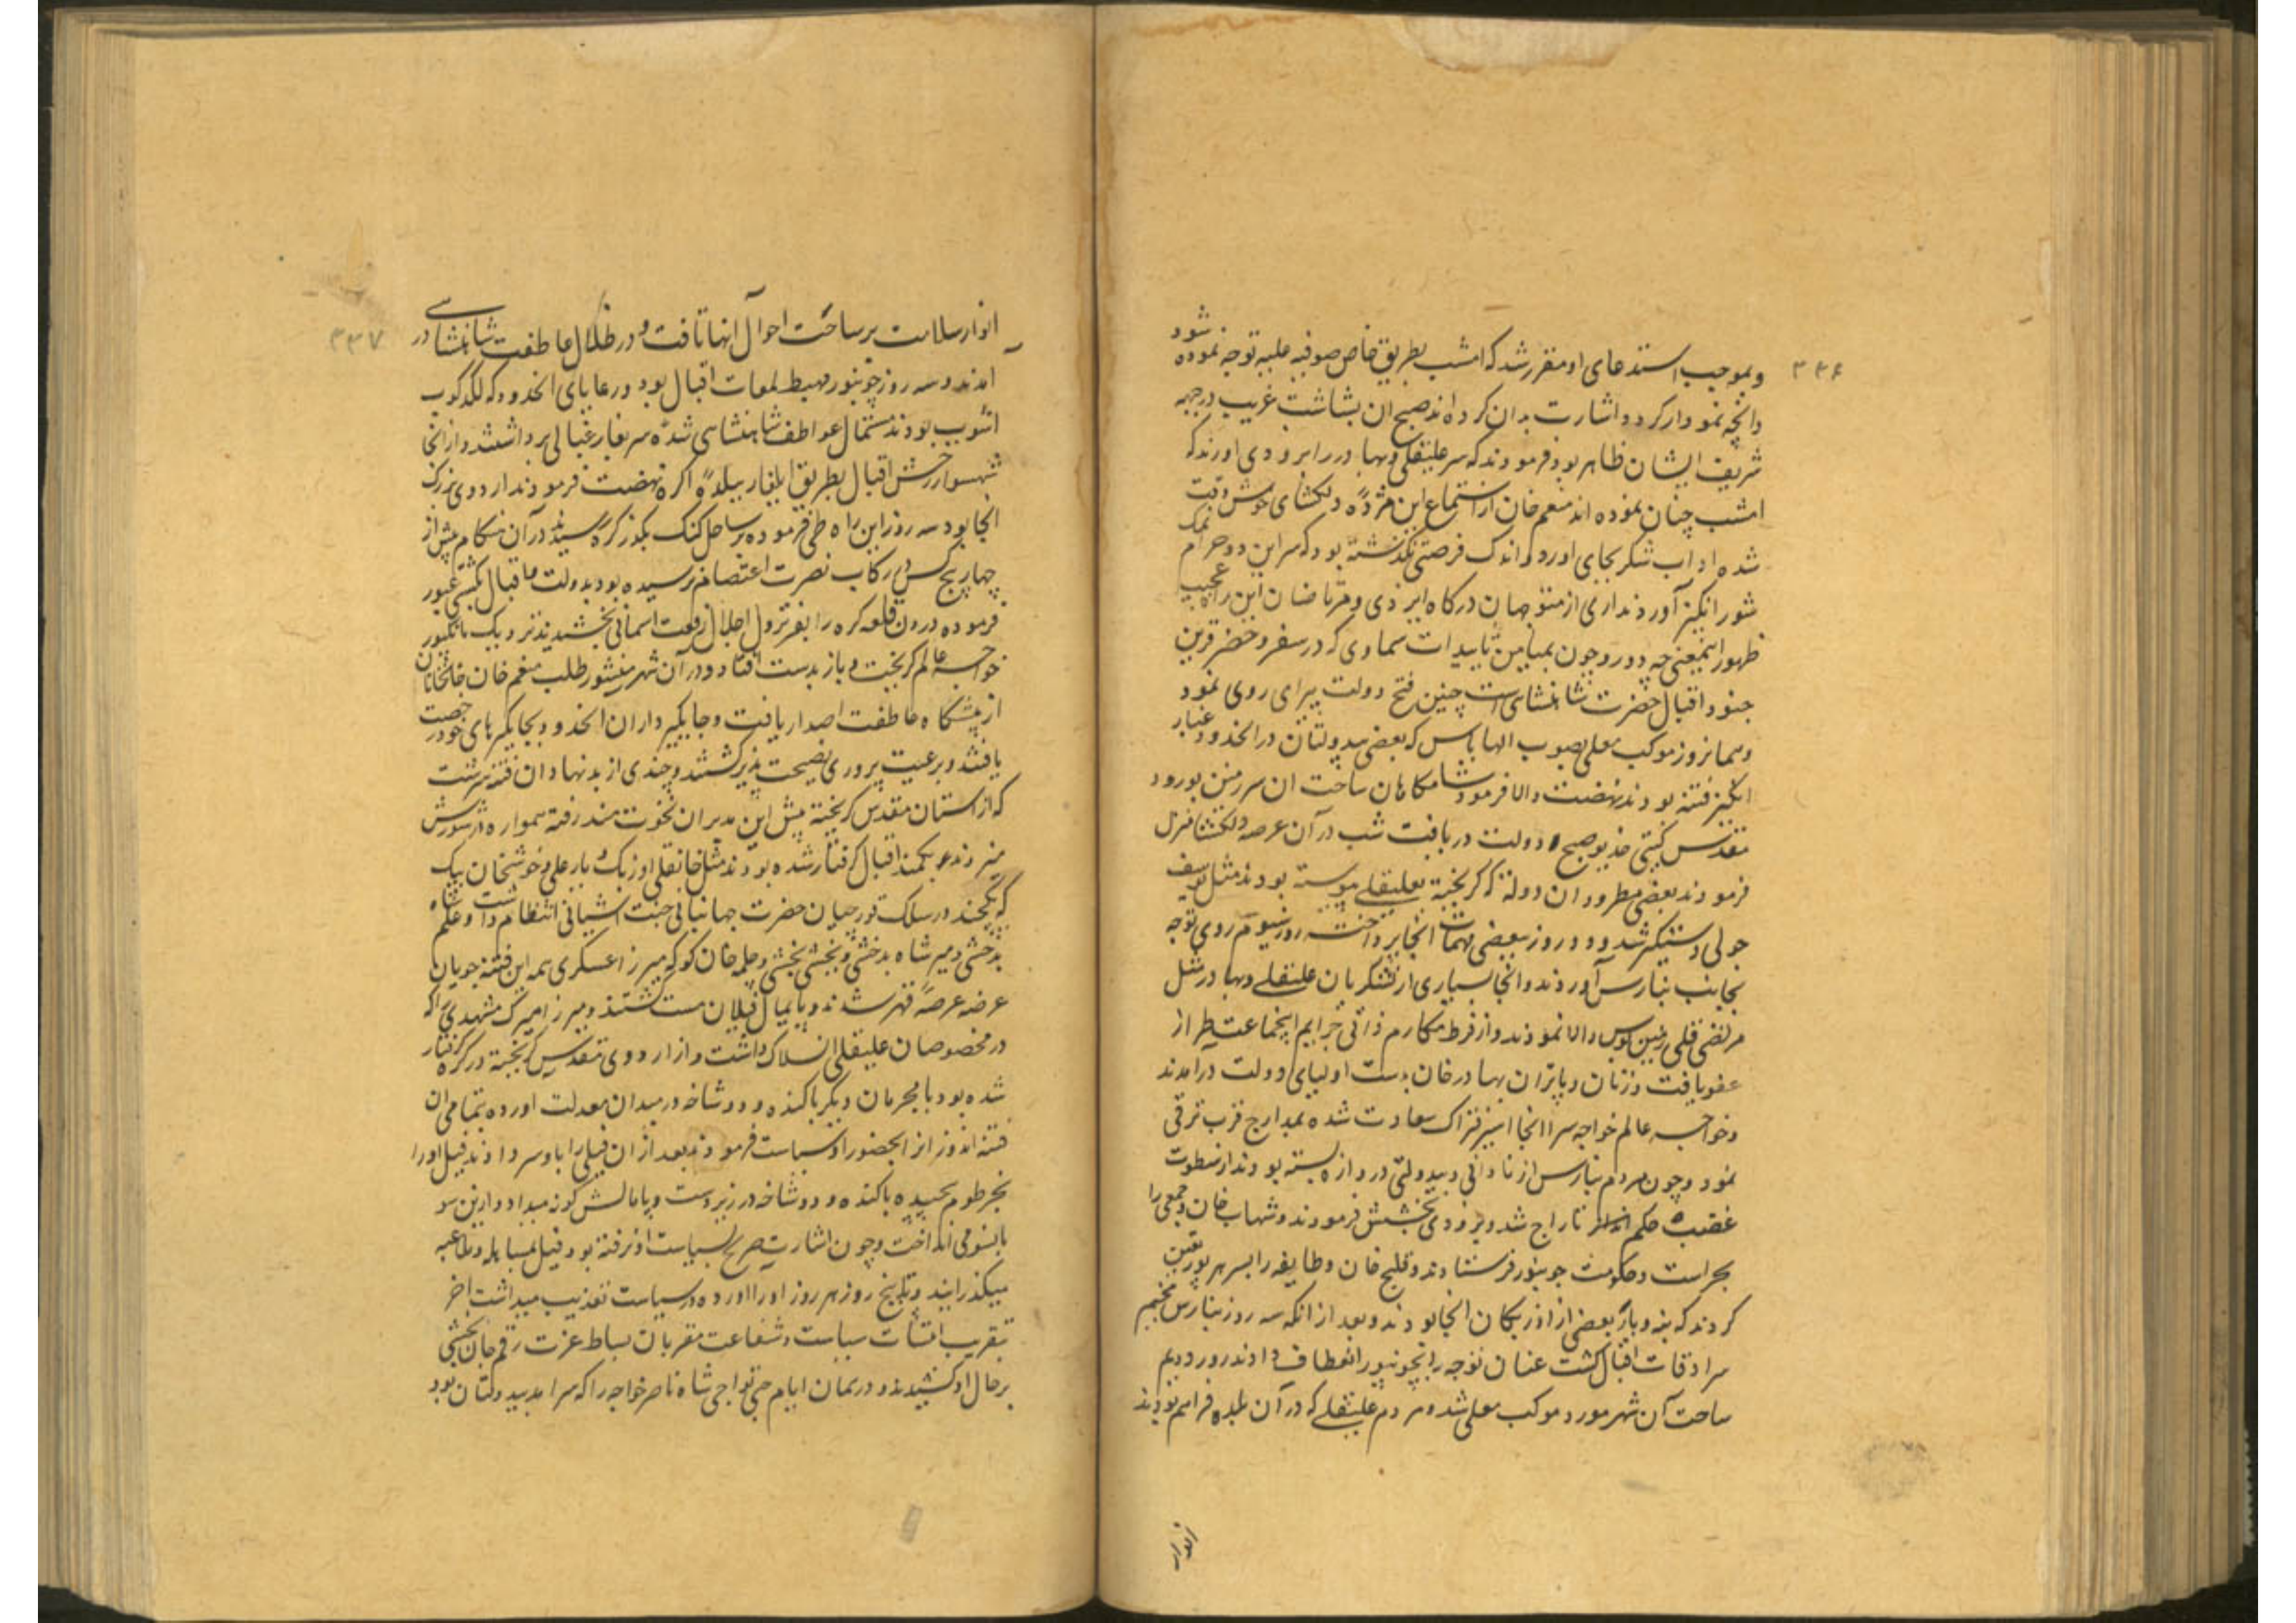 ۳۳۶
و بموجب استدعای او مقرر شد که امشب بطریق خاص صوفیه علیه توجه نموده شود
وانچه نمودار کردد اشارت بدان کرده اند صبح ان بشاشت غریب در جبهه
شریف ایشان ظاهر بود فرمودند که سر علیقلی و بهادر را بزودی اورند که
امشب چنان نموده اند منعم خان از استماع این مژدهٔ دلکشای خوش وقت
شده اداب شکر بجای اورد و اندک فرصتی نکذشته بود که سر این دو حرام نمک
شورانکیز آوردند اری از متوجهان درکاه ایزدی و مرتاضان این راه عجیب
ظهور اینمعنی چه دور و چون بمیامن تاییدات سماوی که در سفر و حضر قرین
جنود اقبال حضرت شاهنشاهی است چنین فتح دولت پیرای روی نمود
و همانروز موکب معلی بصوب الهاباس که بعضی بیدولتان در انحدود غبار
انکیز فتنه بودند نهضت والا فرمود شامکاهان ساحت ان سرزمین بورود
مقدس کیتی خدیو صبح دولت دریافت شب در آن عرصه دلکشا منزل
فرمودند بعضی مطرودان دولت که کریخته بعلیقلی پیوسته بودند مثل یوسف
جولی دستکیر شد و دو روز ببعضی مهمات انجا پرداخته روز سیوم روی توجه
بجانب بنارس آوردند و انجا بسیاری از لشکریان علیقلی و بهادر مثل
مرتضی قلی زمین بوس والا نمودند و از فرط مکارم ذاتی جرایم اینجماعت طراز
عفو یافت و زنان و پاتران بهادر خان بدست اولیای دولت درامدند
و خواجه عالم خواجه سرا انجا اسیر فتراک سعادت شده بمدارج قرب ترقی
نمود و چون مردم بنارس از نادانی و بیدولتی دروازه بسته بودند از سطوت
غضب حکم تاراج شد و بزودی بخشش فرمودند و شهاب خان و جمعی را
بحراست و حکومت جونپور فرستادند و قلیج خان و طایفه را بسرهرپور تعین
کردند که بنه و بار بعضی از اوزبکان انجا بودند و بعد از انکه سه روز بنارس مخیم
سرادقات اقبال کشت عنان توجه را بجونپور انعطاف دادند روز دویم
ساحت آن شهر مورد موکب معلی شد و مردم علیقلی که در آن بلده فراهم بودند
انوار
۳۳۷
انوار سلامت بر ساحت احوال انها تافت و در ظلال عاطفت شاهنشاهی در
آمدند و سه روز جونپور مهبط لمعات اقبال بود و رعایای انحدود که لکدکوب
اشوب بودند مشمول عواطف شاهنشاهی شده سر بفارغبالی برداشتند و از انجا
شهسوار رخش اقبال بطریق ایلغار ببلدهٔ اکره نهضت فرمودند اردوی بزرک
انجا بود سه روز این راه طی فرموده بر ساحل کنک بکذر کره رسیدند در آن هنکام بیش از
چهار پنج کس در رکاب نصرت اعتصام نرسیده بود بدولت و اقبال بکشتی عبور
فرموده درون قلعه کره را بفر نزول اجلال رفعت اسمانی بخشیدند نزدیک مانکپور
خواجه عالم کریخت و باز بدست افتاد و در آن شهر منشور طلب منعم خان خانخانان
از پیشکاه عاطفت اصدار یافت و جایکیرداران انحدود بجایکیرهای خود رخصت
یافتند و بر رعیت پروری نصیحت پذیر کشتند و چندی از بدنهادان فتنه سرشت
که از استان مقدس کریخته پیش این مدبران نخوت مند رفته همواره در شورش
میزدند و بکمند اقبال کرفتار شده بودند مثل خانقلی اوزبک و یارعلی و خوشخان بیک
که یکچند در سلک قورچیان حضرت جهانبانی جنت اشیانی انتظام داشت و علم شاه
بدخشی و میر شاه بدخشی و بخشی بخشی و چلمه خان کوکه میرزا عسکری همه این فتنه جویان
عرضه عرصهٔ قهر شدند و پایمال فیلان مست کشتند و میرزا میرک مشهدی را که
در مخصوصان علیقلی انسلاک داشت و از اردوی مقدس کریخته در کره کرفتار
شده بود با مجرمان دیکر با کنده و دوشاخه در میدان معدلت اورده بتمامی ان
فتنه اندوزانرا بحضور او سیاست فرمودند بعد از ان فیلی را باو سر دادند فیل او را
بخرطوم پیچیده با کنده و دوشاخه در زیر دست و پا مالش کونه میداد و ازین سو
بانسو می انداخت و چون اشارت صریح بسیاست او نرفته بود فیل بمساهله و ملاعبه
میکذرانید و تا پنج روز هر روز او را اورده در سیاست تعذیب میداشت اخر
بتقریب سیاست و شفاعت مقربان بساط عزت رقم جان بخشی
بر حال او کشیدند و در همان ایام حق نواجی شاه ناصر خواجه را که سرامد بیدولتان بود